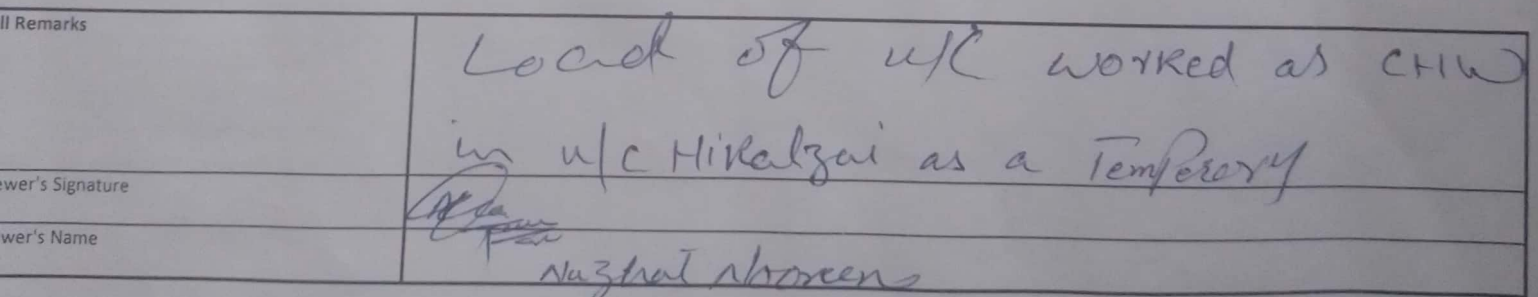 ll Remarks
Locad of u/C worked as CHW
in u/C Hikalzai as a Temperory
ewer's Signature
wer's Name
Nazhat Noreen